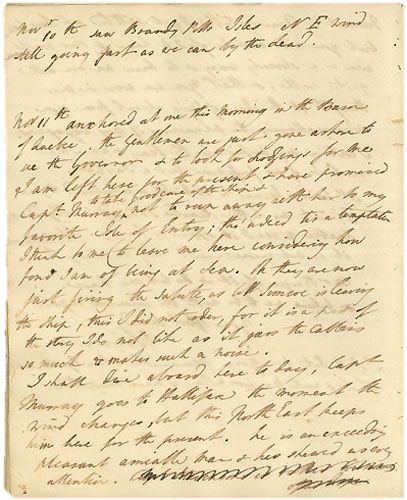 Novr 10 th saw Brandy Potts Isles N E wind
still going fast as we can by the lead.
Nov 11th anchored at one this Morning in the Bason
of Quebec. the Gentlemen are just gone ashore to
see the Governor & to look for Lodgings for me
I am left here for the present & have promised
to take good care of the Ship &
Capt. Murray not to run away with her to my
favorite Isle of Entry; tho' indeed tis a temptation
I think to me (to leave me here considering how
fond I am of being at Sea. Oh they are now
just firing the Salute, as Coll Simcoe is leaving
the ship, this I did not order, for it is a part of
the story I do not like as it jars the Cabbins
so much & makes such a noise.
I shall dine aboard here to day, Capt
Murray goes to Hallifax the moment the
wind changes, but this North East keeps
him here for the present. he is an exceeding
pleasant amiable man & has shewed us every
attention.